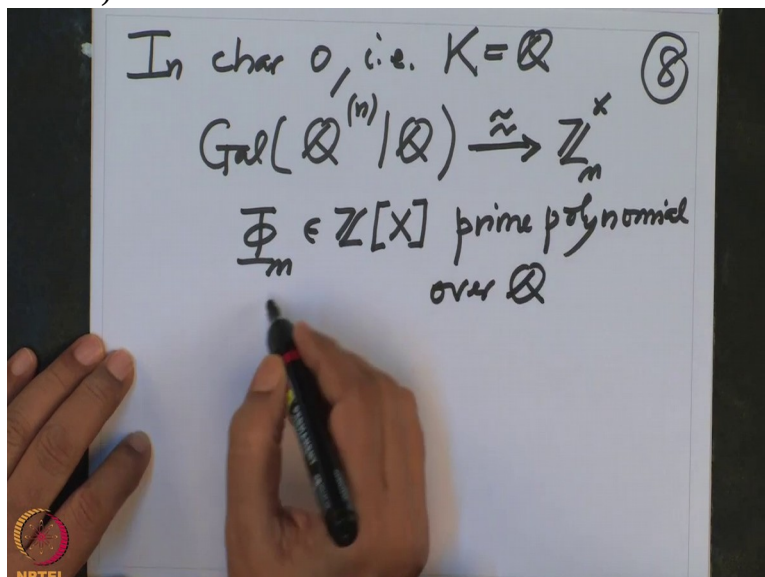 In char 0, i.e. K = ℚ ⑧
Gal(ℚ⁽ⁿ⁾|ℚ) ⥲ ℤₙˣ
Φₙ ∈ ℤ[X] prime polynomial
over ℚ
NPTEL